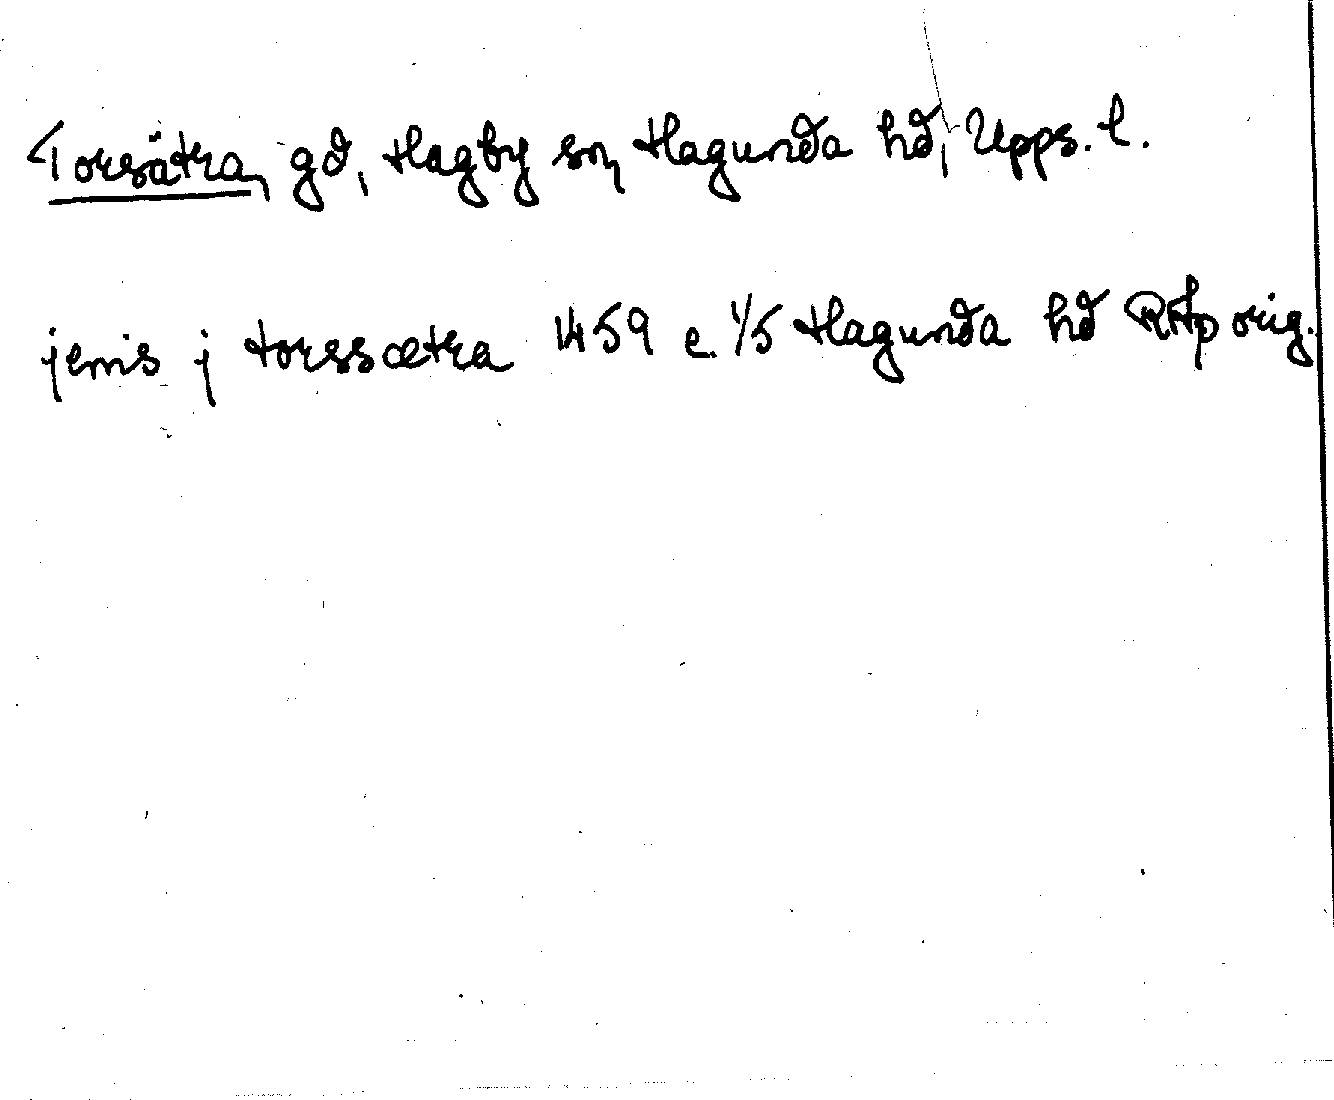 Torsätra, gd, Hagby sn, Hagunda hd, Upps. l.
jenis j torssætra 1459 e. 1/5 Hagunda hd RAp orig.